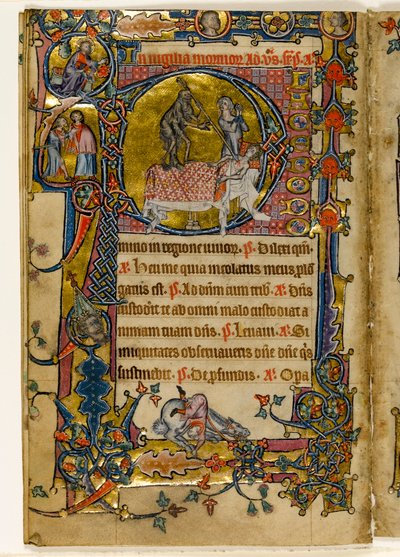 In vigilia mortuor. Ad vs. sep. a.
mino in regione vivor. p. Dilexi qm.
a. Heu me quia incolatus meus plo
gatus est. p. Ad dnm cum trib. a. Dns
custodit te ab omni malo custodiat a
nimam tuam dns. p. Levavi. a. Si
iniquitates observaveris dne dne qs
sustinebit. p. De pfundis. a. Opa